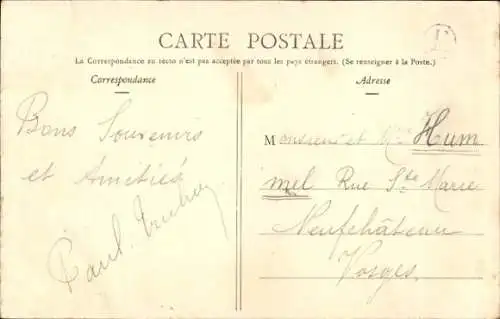 CARTE POSTALE
La Correspondance au recto n'est pas acceptée par tous les pays étrangers. (Se renseigner à la Poste.)
Correspondance
Bons Souvenirs
et Amitiés
Paul
Adresse
Monsieur et Mme Hum
mel Rue Ste Marie
Neufchâteau
Vosges